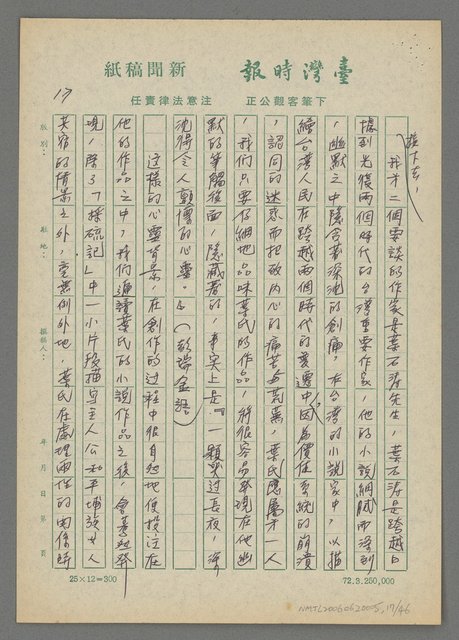 臺灣時報 新聞稿紙
下筆客觀公正 注意法律責任
接下去,
我第二個要談的作家是葉石濤先生,葉石濤是跨越日
據到光復兩個時代的台灣重要作家,他的小說細膩而深刻
,幽默之中隱含著深沈的創痛,在台灣的小說家中,以描
繪台灣人民在跨越兩個時代的憂邊中,因為價值系統的崩潰
,認同的迷惑而招致內心的痛苦與荒蕪,葉氏應屬第一人
,我們只要仔細地品味葉氏的作品,將很容易發現在他幽
默的筆觸後面,隱藏著的,事實上是『一顆哭過長夜,深
沈得令人顫慄的心靈。』(彭瑞金語)
這樣的心靈背景,在創作的過程中很自然地便投注在
他的作品之中,我們遍讀葉氏的小說作品之後,會意外發
現,除了「採硫記」中一小片段描寫主人公和平埔族女人
共宿的情景之外,毫無例外地,葉氏在處理兩性的關係時
17
版別:
駐地:
撰稿人:
年 月 日 第 頁
25×12=300
72.3.250,000
NMTL20060620005,17/46